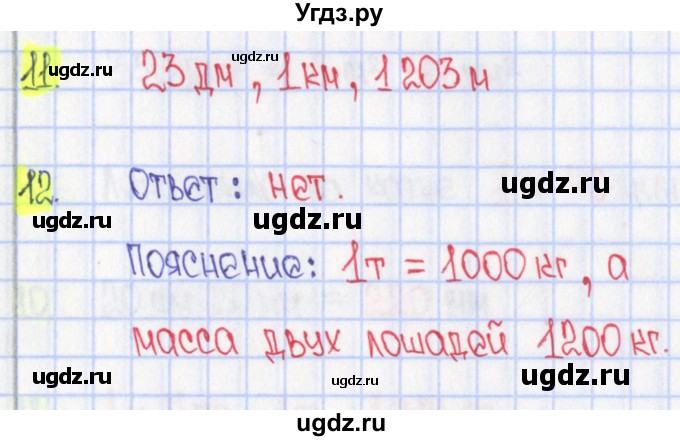 Угдз.ру
11. 23 дм, 1 км, 1 203 м
ugdz.ru
ugdz.ru
ugdz.ru
12. Ответ: нет.
ugdz.ru
ugdz.ru
ugdz.ru
Пояснение: 1т = 1000 кг, а
масса двух лошадей 1200 кг.
ugdz.ru
ugdz.ru
ugdz.ru
ugdz.ru